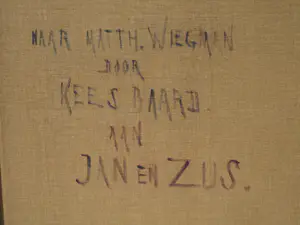 NAAR MATTH. WIEGMAN
DOOR
KEES BAARD.
AAN
JAN EN ZUS.